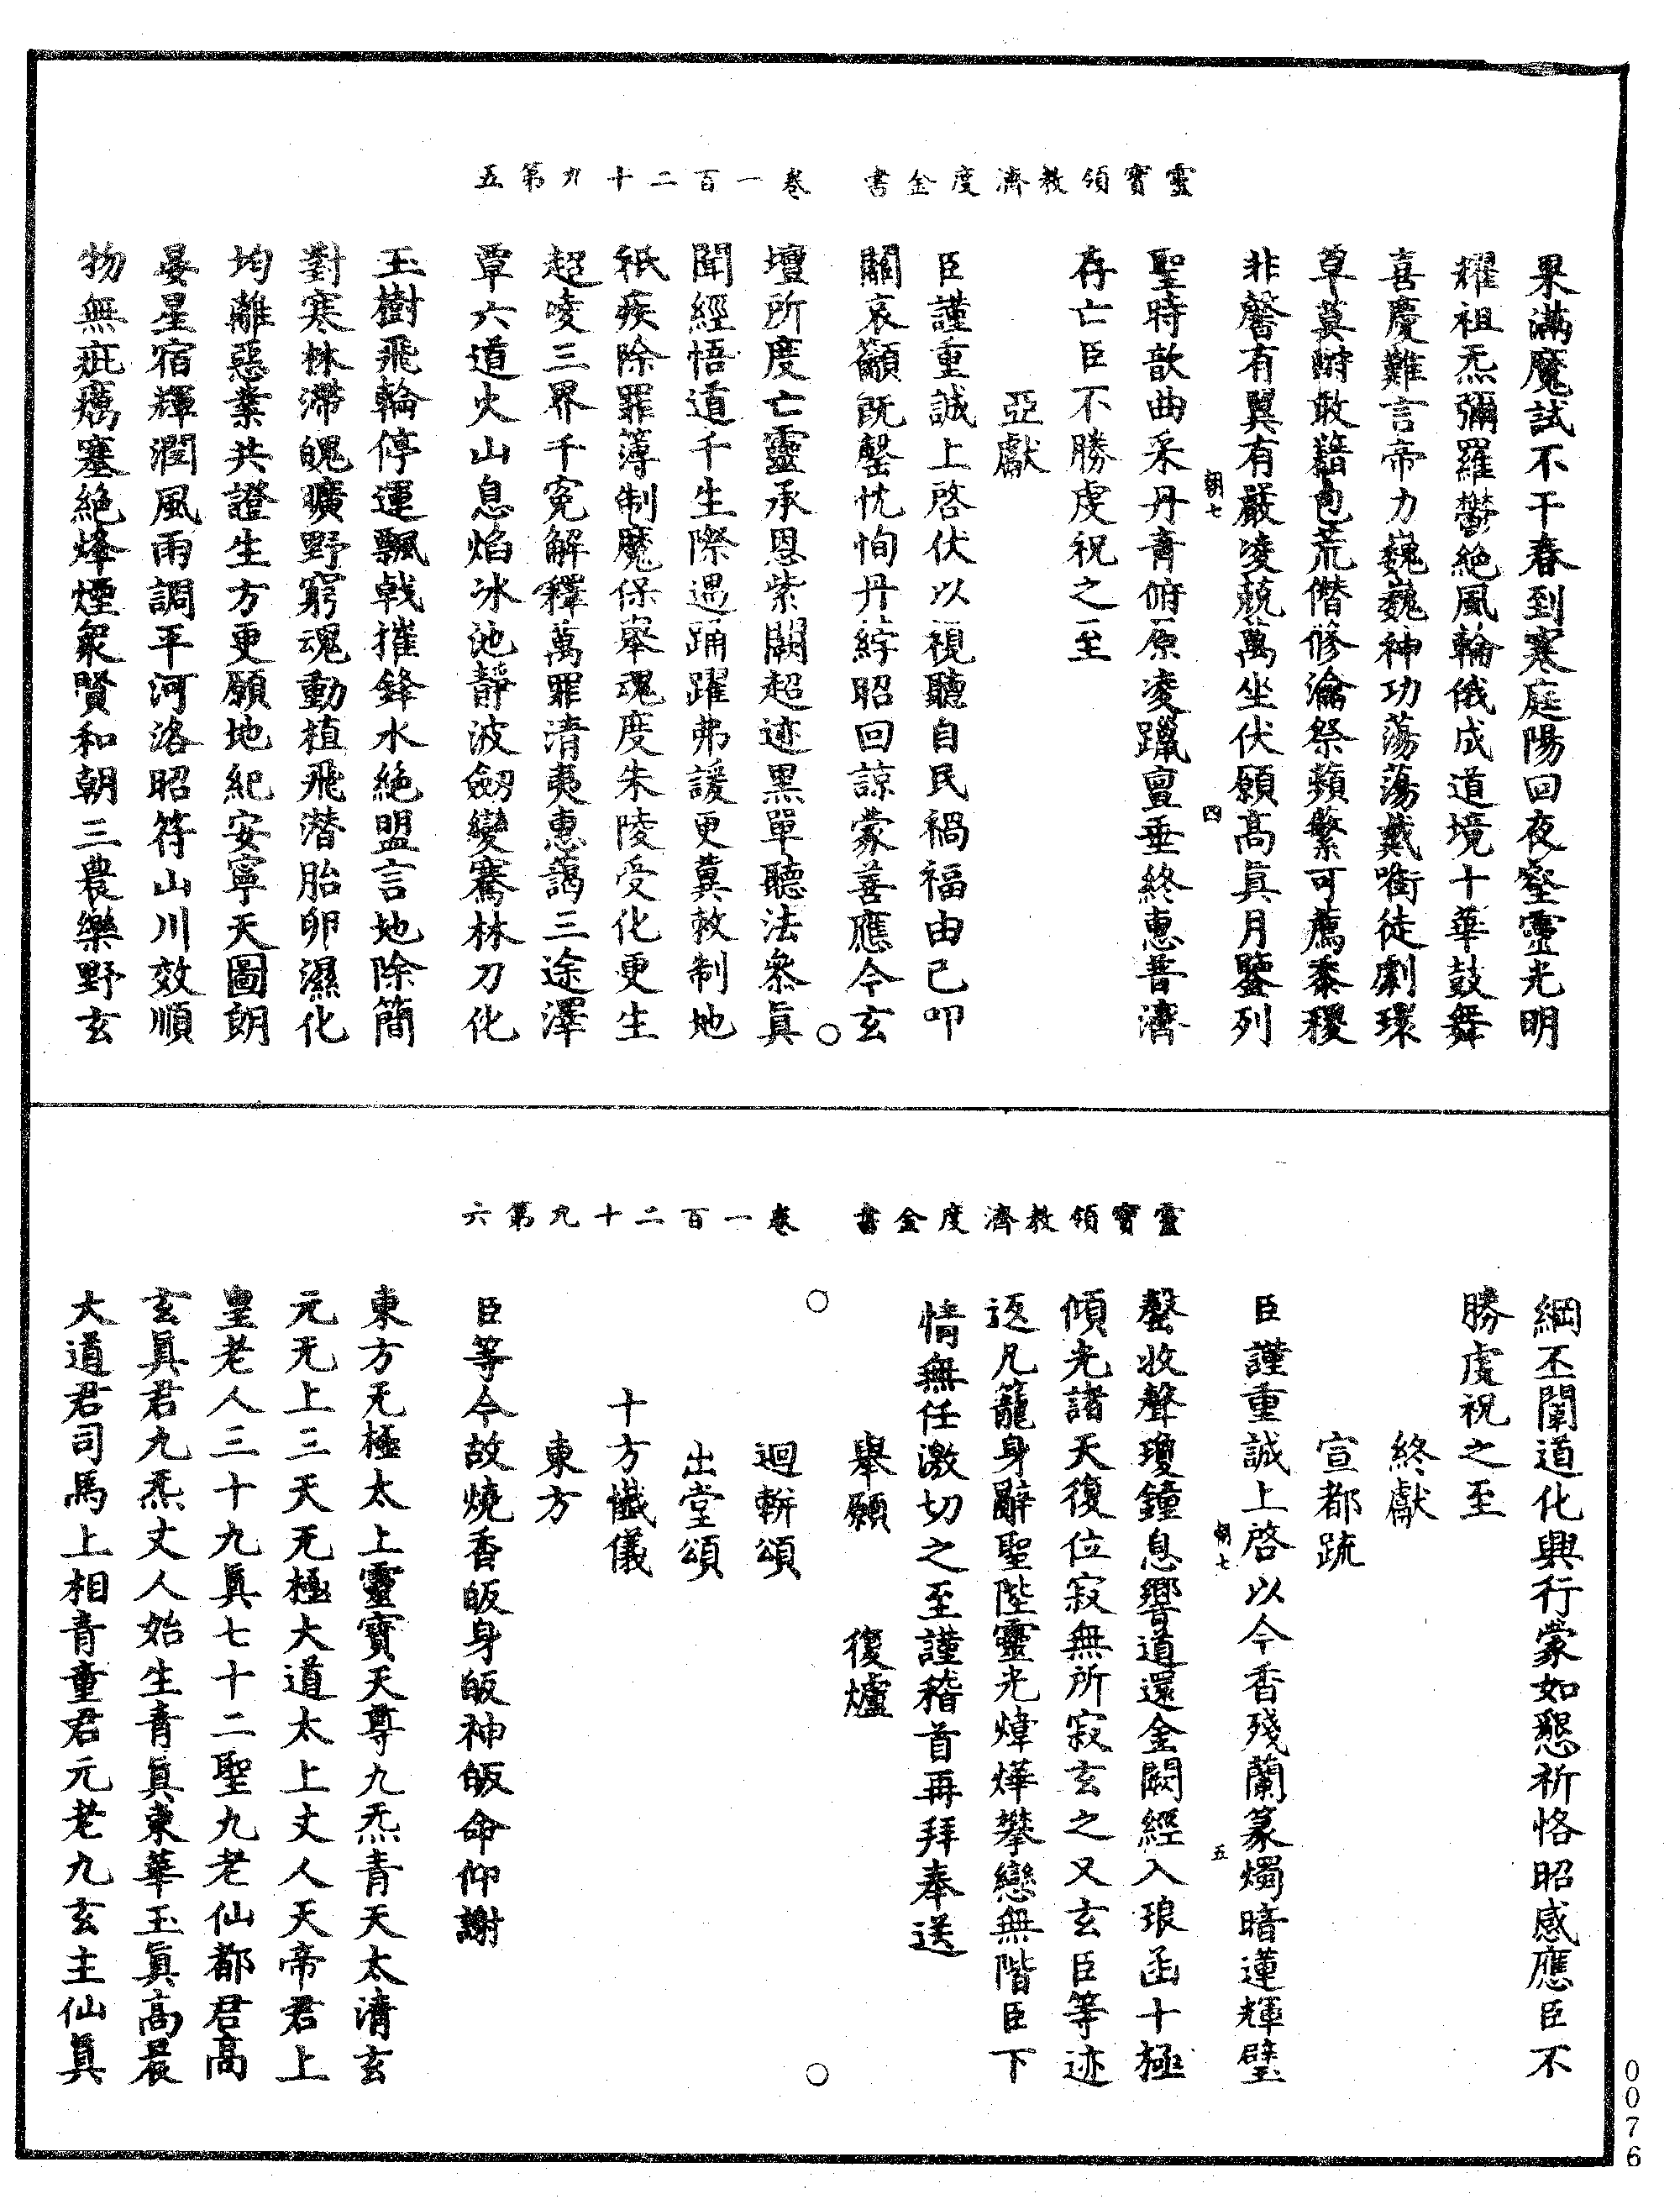 靈寶領教濟度金書　卷一百二十九第五
果滿魔試不干春到寒庭陽回夜壑靈光明
耀祖炁彌羅鬱絕風輪俄成道境十華鼓舞
喜慶難言帝力巍巍神功蕩蕩戴啣徒劇環
草莫酧敢藉包荒僭修瀹祭蘋蘩可薦黍稷
非馨有翼有嚴凌兢萬坐伏願高眞月鑒列
朝七　四
聖時歆曲采丹青俯原凌躐亶垂終惠普濟
存亡臣不勝虔祝之至
亞獻
臣謹重誠上啓伏以視聽自民禍福由己叩
關哀籲旣罄忱恂丹綍昭回諒蒙善應今玄
壇所度亡靈承恩紫闕超迹黑單聽法叅眞
聞經悟道千生際遇踊躍弗諼更冀敕制地
祇疾除罪簿制魔保舉魂度朱陵受化更生
超唆三界千寃解釋萬罪清夷惠藹三途澤
覃六道火山息焰冰池靜波劒變騫林刀化
玉樹飛輪停運飄戟摧鋒水絕盟言地除簡
對寒林滯魄曠野窮魂動植飛潛胎卵濕化
均離惡業共證生方更願地紀安寧天圖朗
晏星宿輝潤風雨調平河洛昭符山川效順
物無疵癘塞絕烽煙衆賢和朝三農樂野玄
靈寶領教濟度金書　卷一百二十九第六
綱丕闡道化興行蒙如懇祈恪昭感應臣不
勝虔祝之至
終獻
宣都疏
臣謹重誠上啓以今香殘蘭篆燭暗蓮輝璧
朝七　五
罄收聲瓊鐘息響道還金闕經入琅函十極
傾光諸天復位寂無所寂玄之又玄臣等迹
返凡籠身辭聖陛靈光煒燁攀戀無階臣下
情無任激切之至謹稽首再拜奉送
舉願　復爐
迴軿頌
出堂頌
十方懺儀
東方
臣等今故燒香皈身皈神皈命仰謝
東方无極太上靈寶天尊九炁青天太清玄
元无上三天无極大道太上丈人天帝君上
皇老人三十九眞七十二聖九老仙都君高
玄眞君九炁丈人始生青眞東華玉眞高晨
大道君司馬上相青童君元老九玄主仙眞
0076